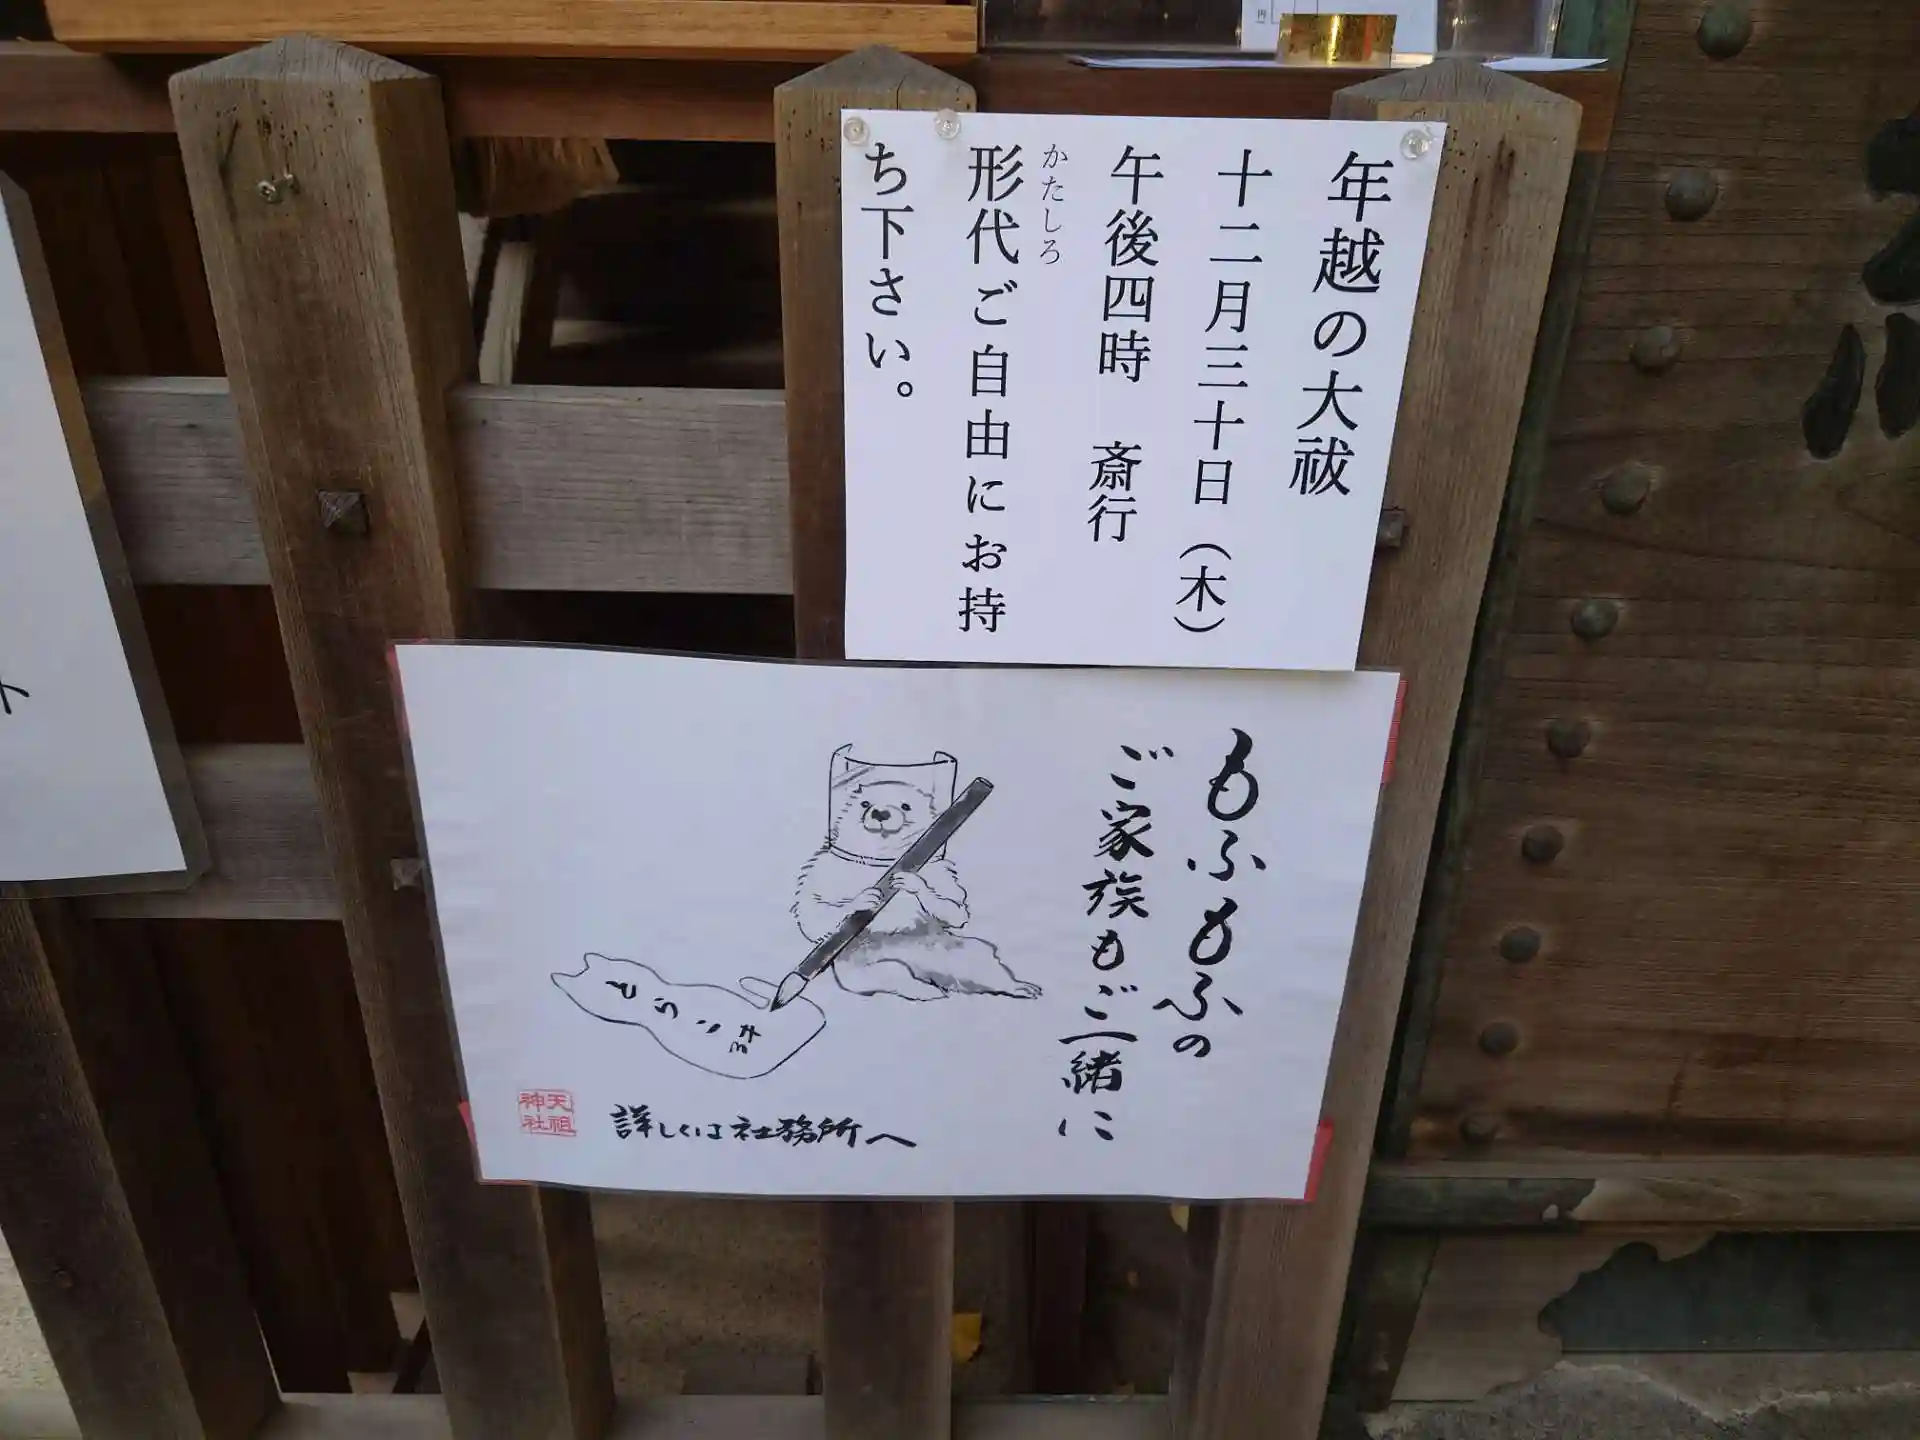 年越の大祓
十二月三十日（木）
午後四時　斎行
かたしろ
形代ご自由にお持
ち下さい。
もふもふの
ご家族もご一緒に
詳しくは社務所へ
天祖
神社